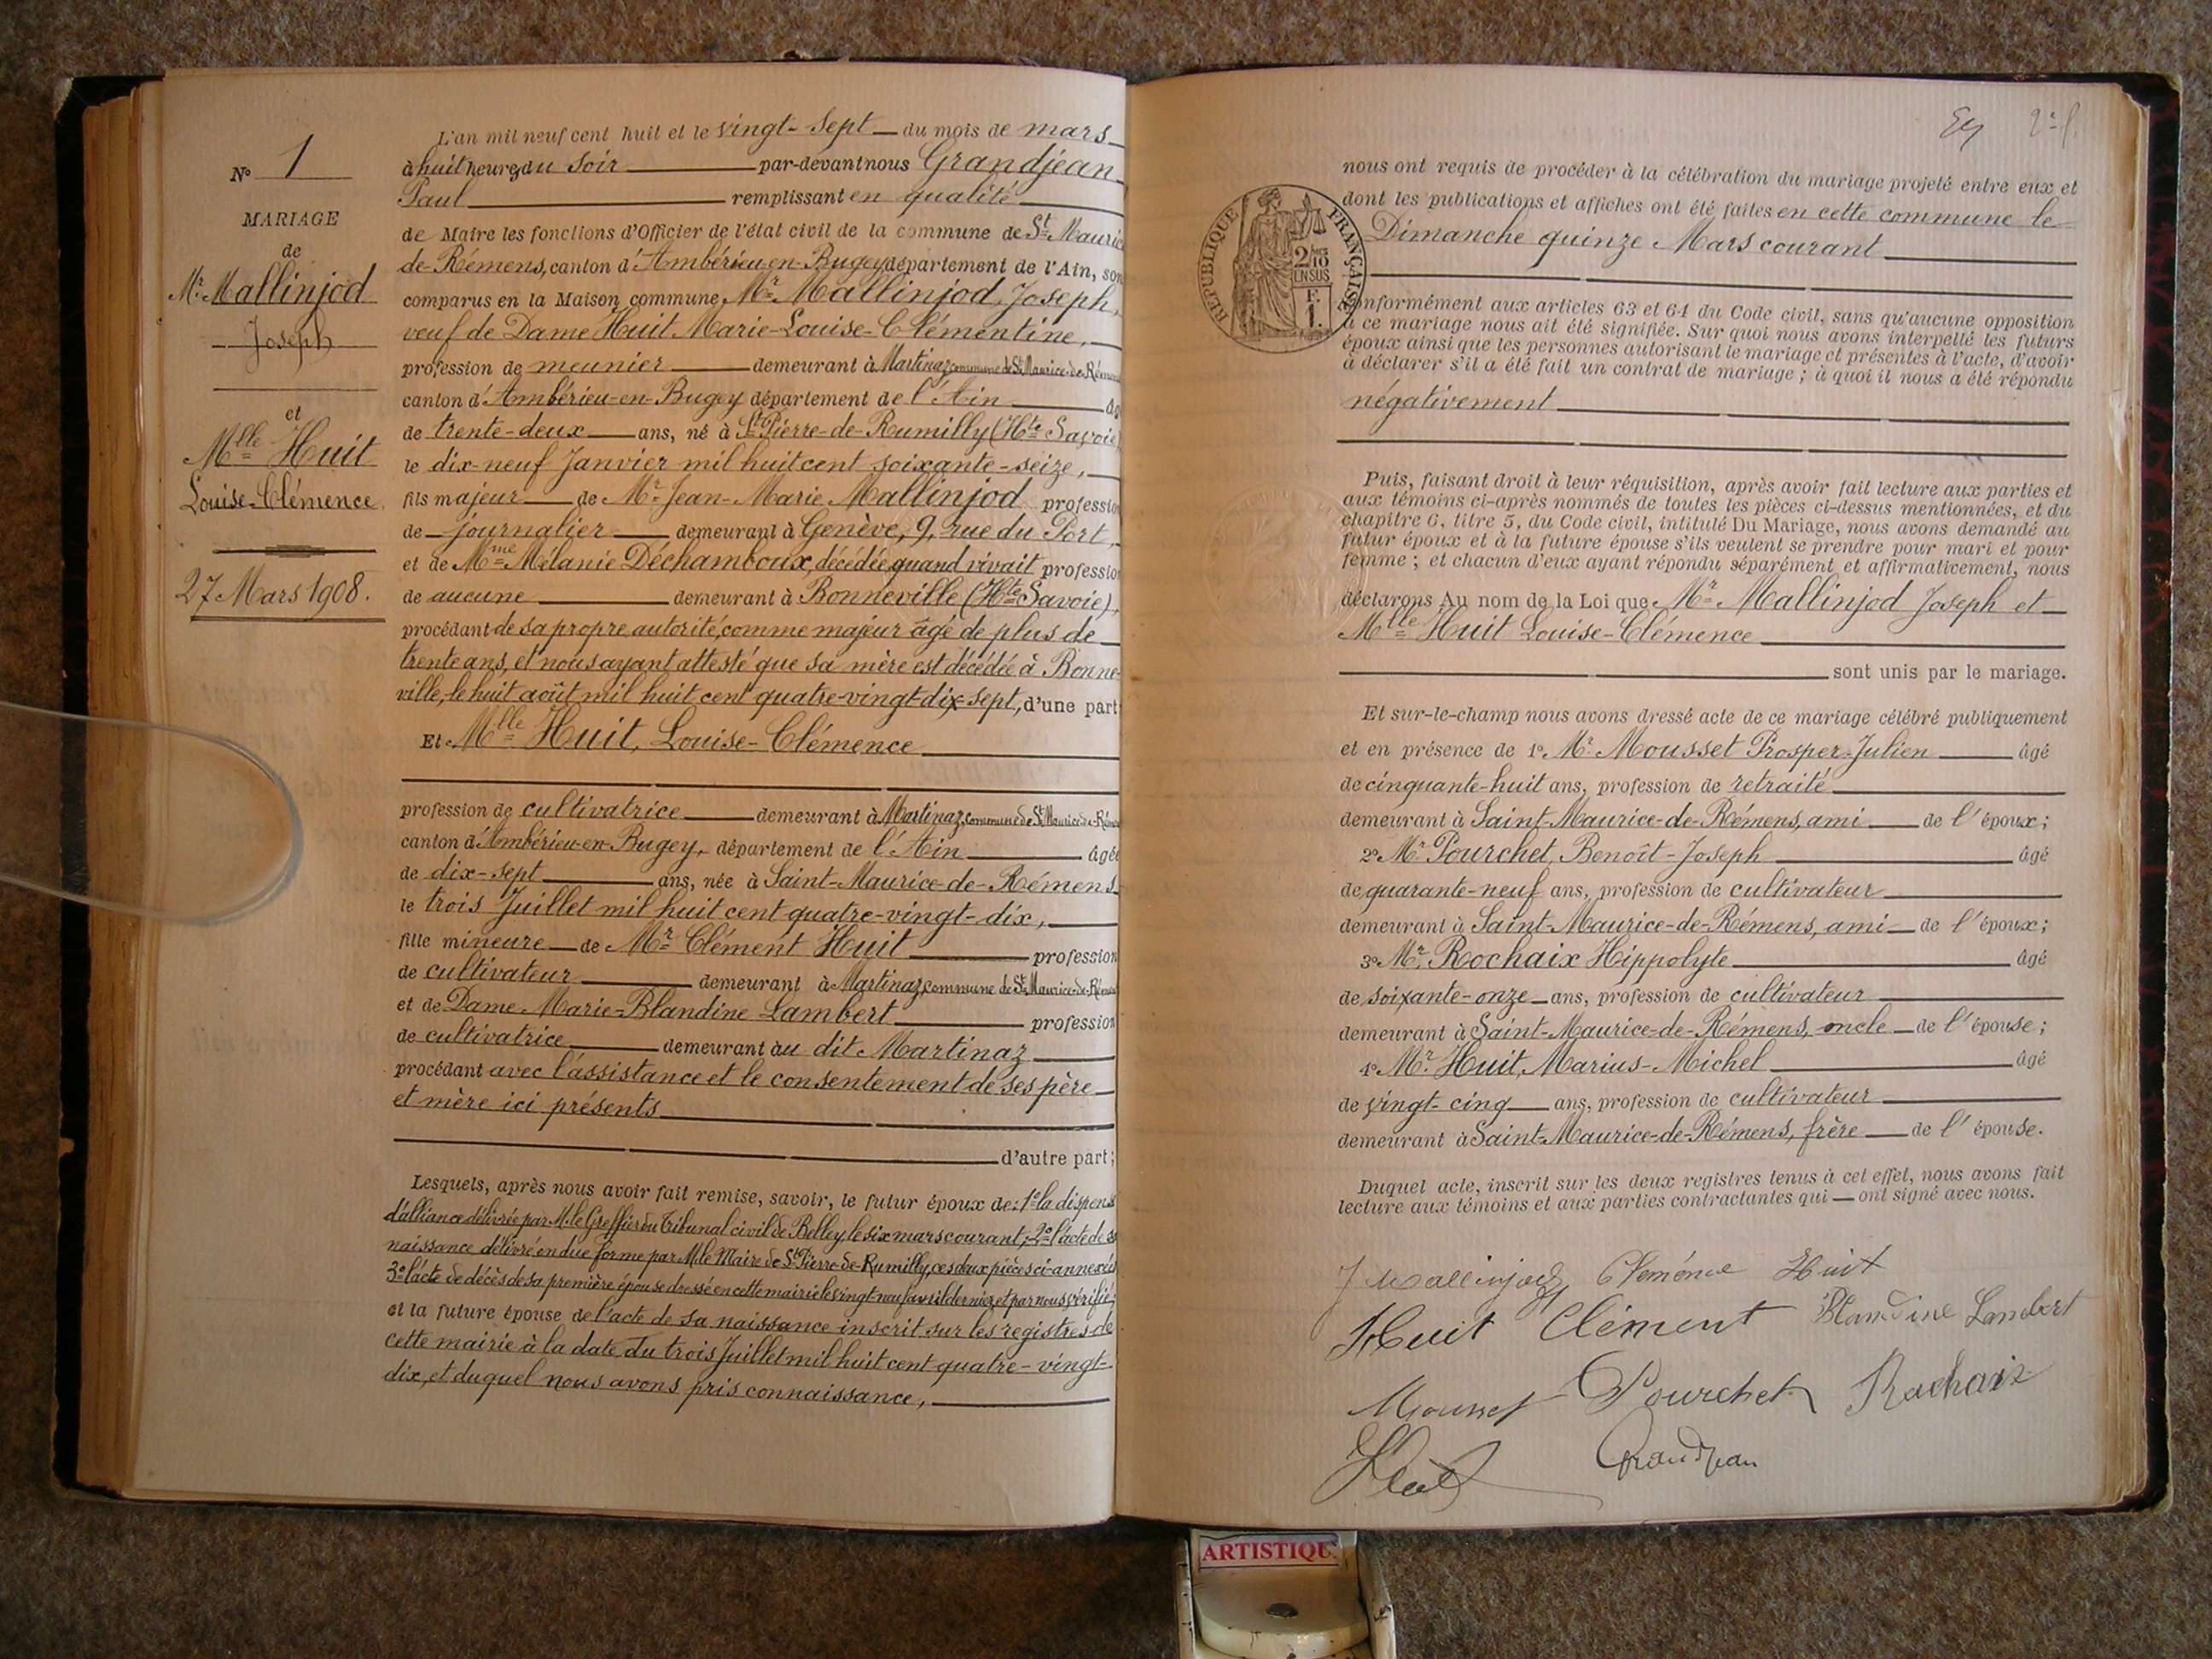 N° 1
MARIAGE
de
Mr Mallinjod
Joseph
et
Mlle Huit
Louise-Clémence.
27 Mars 1908.
L'an mil neuf cent huit et le vingt-sept du mois de mars
à huit heures du soir par-devant nous Grandjean
Paul remplissant en qualité
de Maire les fonctions d'Officier de l'état civil de la commune de St Maurice
de-Rémens, canton d'Ambérieu-en-Bugey département de l'Ain, son
comparus en la Maison commune, Mr Mallinjod, Joseph,
veuf de Dame Huit Marie-Louise-Clémentine,
profession de meunier demeurant à Martinaz commune de St Maurice-de-Rémens
canton d'Ambérieu-en-Bugey département de l'Ain âg
de trente-deux ans, né à St Pierre-de-Rumilly (Hte Savoie)
le dix-neuf Janvier mil huit cent soixante-seize,
fils majeur de Mr Jean-Marie Mallinjod profession
de journalier demeurant à Genève, 9, rue du Port,
et de Mme Mélanie Déchamboux, décédée, quand vivait profession
de aucune demeurant à Bonneville (Hte Savoie),
procédant de sa propre autorité, comme majeur âgé de plus de
trente ans, et nous ayant attesté que sa mère est décédée à Bonne-
ville, le huit août mil huit cent quatre-vingt-dix-sept, d'une part
Et Mlle Huit, Louise-Clémence
profession de cultivatrice demeurant à Martinaz, commune de St Maurice-de-Rémens
canton d'Ambérieu-en-Bugey, département de l'Ain âgée
de dix-sept ans, née à Saint-Maurice-de-Rémens
le trois Juillet mil huit cent quatre-vingt-dix,
fille mineure de Mr Clément Huit profession
de cultivateur demeurant à Martinaz, commune de St Maurice-de-Rémens
et de Dame Marie-Blandine Lambert profession
de cultivatrice demeurant au dit Martinaz
procédant avec l'assistance et le consentement de ses père
et mère ici présents
d'autre part;
Lesquels, après nous avoir fait remise, savoir, le futur époux de: 1° la dispens
d'alliance délivrée par M. le Greffier du Tribunal civil de Belley le six mars courant; 2° l'acte de sa
naissance délivré en due forme par M. le Maire de St Pierre-de-Rumilly, ces deux pièces ci-annexées
3° l'acte de décès de sa première épouse dressé en cette mairie le vingt-neuf avril dernier, et par nous vérifié;
et la future épouse de l'acte de sa naissance inscrit sur les registres de
cette mairie à la date du trois Juillet mil huit cent quatre-vingt-
dix, et duquel nous avons pris connaissance,
nous ont requis de procéder à la célébration du mariage projeté entre eux et
dont les publications et affiches ont été faites en cette commune le
Dimanche quinze Mars courant
RÉPUBLIQUE FRANÇAISE
2/10
EN SUS
F.
1.
conformément aux articles 63 et 64 du Code civil, sans qu'aucune opposition
à ce mariage nous ait été signifiée. Sur quoi nous avons interpellé les futurs
époux ainsi que les personnes autorisant le mariage et présentes à l'acte, d'avoir
à déclarer s'il a été fait un contrat de mariage; à quoi il nous a été répondu
négativement
Puis, faisant droit à leur réquisition, après avoir fait lecture aux parties et
aux témoins ci-après nommés de toutes les pièces ci-dessus mentionnées, et du
chapitre 6, titre 5, du Code civil, intitulé Du Mariage, nous avons demandé au
futur époux et à la future épouse s'ils veulent se prendre pour mari et pour
femme; et chacun d'eux ayant répondu séparément et affirmativement, nous
déclarons Au nom de la Loi que Mr Mallinjod Joseph et
Mlle Huit Louise-Clémence
sont unis par le mariage.
Et sur-le-champ nous avons dressé acte de ce mariage célébré publiquement
et en présence de 1° Mr Mousset Prosper-Julien âgé
de cinquante-huit ans, profession de retraité
demeurant à Saint-Maurice-de-Rémens, ami de l'époux;
2° Mr Pourchet, Benoît-Joseph âgé
de quarante-neuf ans, profession de cultivateur
demeurant à Saint-Maurice-de-Rémens, ami de l'époux;
3° Mr Rochaix Hippolyte âgé
de soixante-onze ans, profession de cultivateur
demeurant à Saint-Maurice-de-Rémens, oncle de l'épouse;
4° Mr Huit, Marius-Michel âgé
de vingt-cinq ans, profession de cultivateur
demeurant à Saint-Maurice-de-Rémens, frère de l'épouse.
Duquel acte, inscrit sur les deux registres tenus à cet effet, nous avons fait
lecture aux témoins et aux parties contractantes qui ont signé avec nous.
J Mallinjod Clémence Huit
Huit Clément Blandine Lambert
Mousset Pourchet Rochaix
Huit Grandjean
ARTISTIQU